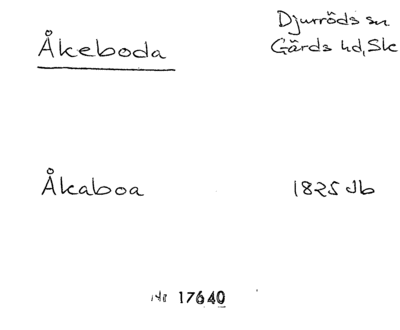 Åkeboda
Djurröds sn
Gärds hd, Sk
Åkaboa
1825 Jb
Nr 17640